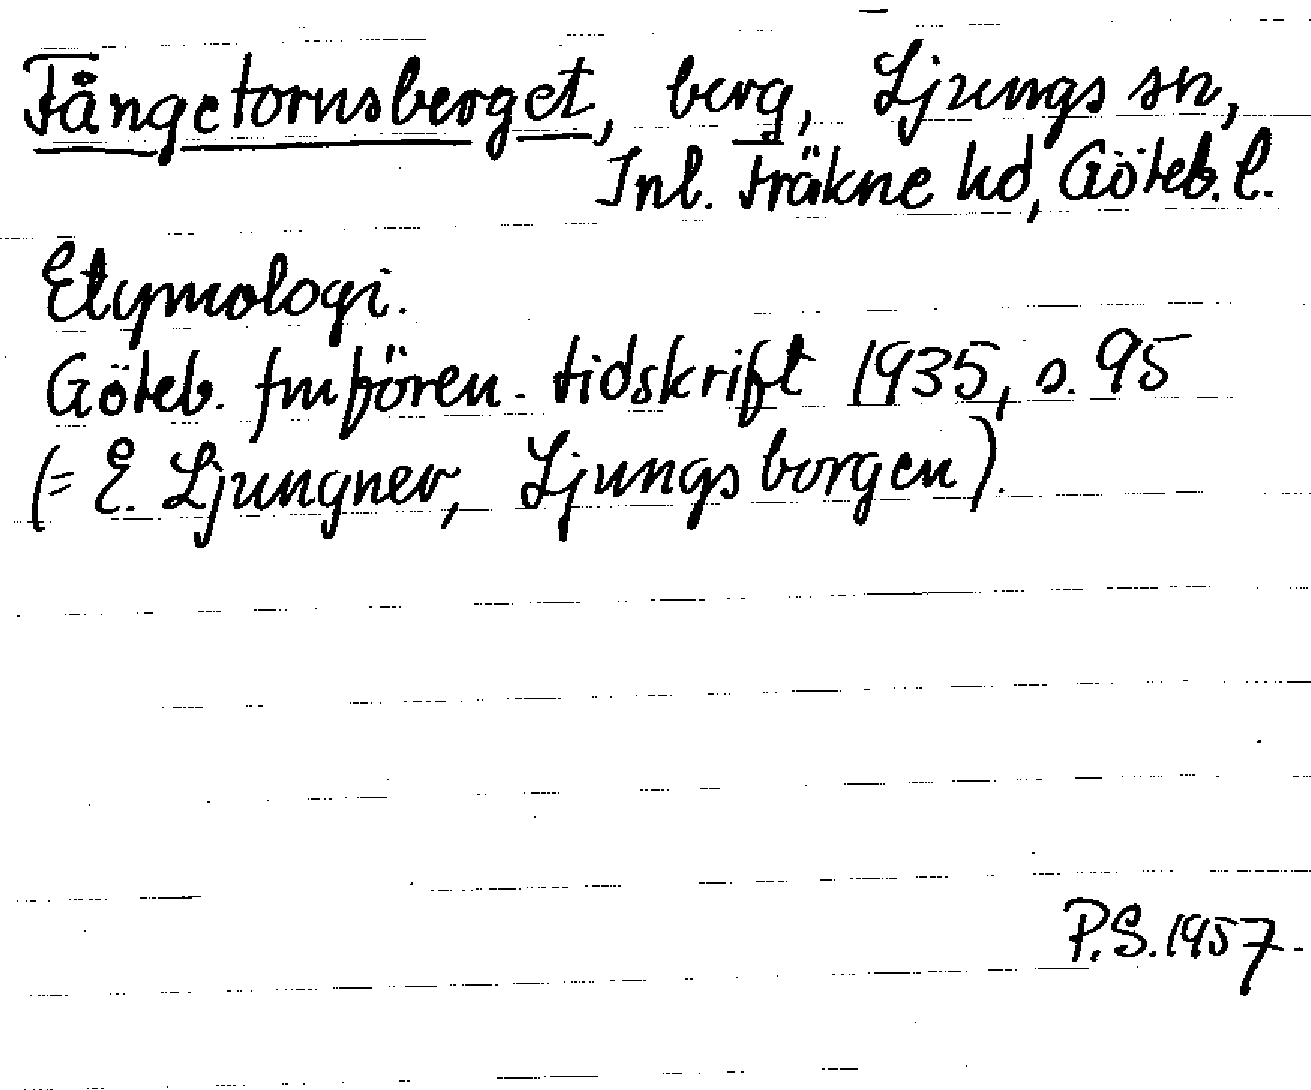 Fångetornsberget, berg, Ljungs sn,
Inl. Fräkne hd, Göteb. l.
Etymologi.
Göteb. fmfören. tidskrift 1935, s. 95
(= E. Ljungner, Ljungsborgen).
P.S. 1957.